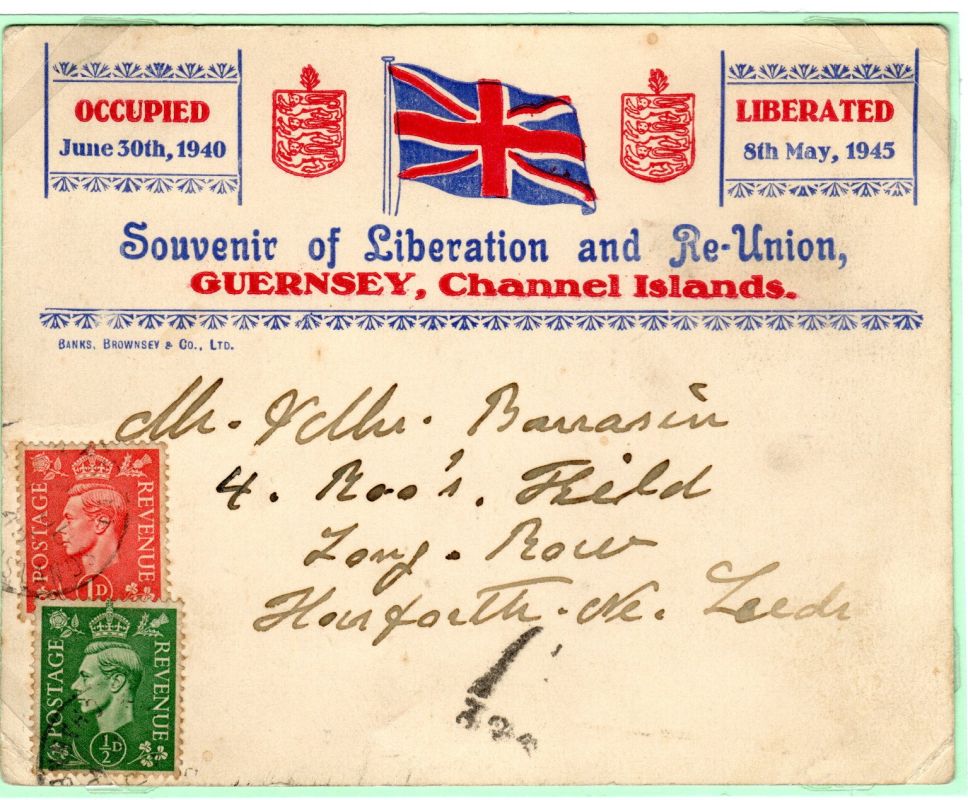 OCCUPIED
June 30th, 1940
LIBERATED
8th May, 1945
Souvenir of Liberation and Re-Union,
GUERNSEY, Channel Islands.
BANKS, BROWNSEY & CO., LTD.
Mr. & Mrs. Barrasin
4. Roo's. Field
Long. Row
Horforth. Nr. Leeds
POSTAGE REVENUE
1D
POSTAGE REVENUE
½D